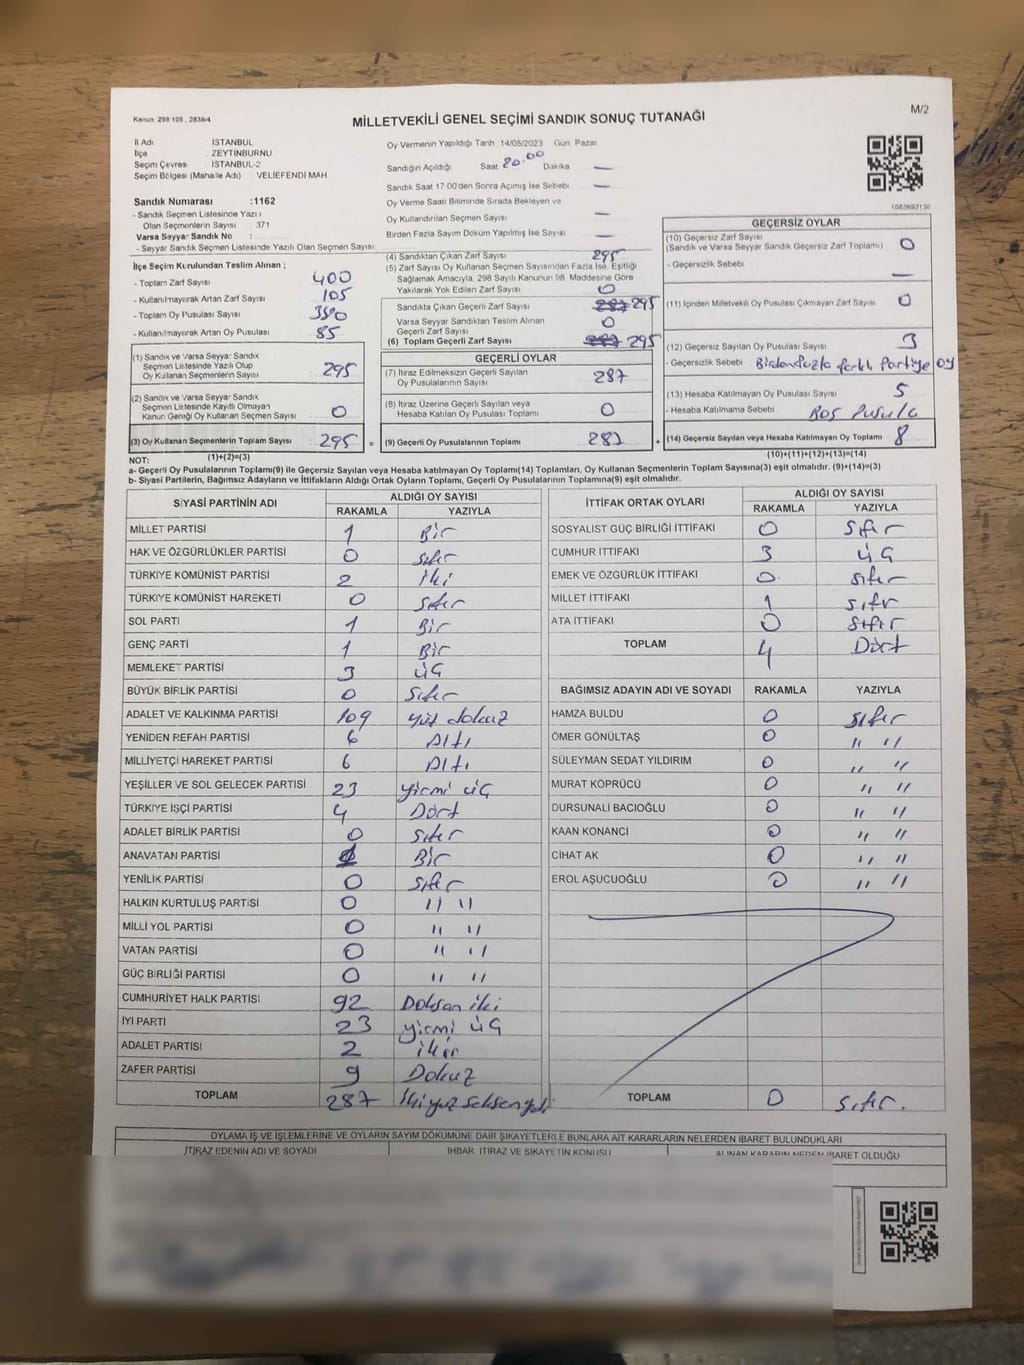 Kanun: 298/105 , 2839/4
M/2
MİLLETVEKİLİ GENEL SEÇİMİ SANDIK SONUÇ TUTANAĞI
İl Adı : İSTANBUL
İlçe : ZEYTİNBURNU
Seçim Çevresi : İSTANBUL-2
Seçim Bölgesi (Mahalle Adı) : VELİEFENDİ MAH
Sandık Numarası :1162
- Sandık Seçmen Listesinde Yazılı
Olan Seçmenlerin Sayısı : 371
Varsa Seyyar Sandık No :
- Seyyar Sandık Seçmen Listesinde Yazılı Olan Seçmen Sayısı:
Oy Vermenin Yapıldığı Tarih 14/05/2023 Gün Pazar
Sandığın Açıldığı Saat 20.00 Dakika —
Sandık Saat 17.00'den Sonra Açılmış İse Sebebi —
Oy Verme Saati Bitiminde Sırada Bekleyen ve
Oy Kullandırılan Seçmen Sayısı —
Birden Fazla Sayım Döküm Yapılmış İse Sayısı —
1083692136
İlçe Seçim Kurulundan Teslim Alınan ;
- Toplam Zarf Sayısı : 400
- Kullanılmayarak Artan Zarf Sayısı : 105
- Toplam Oy Pusulası Sayısı :
- Kullanılmayarak Artan Oy Pusulası : 85
(1) Sandık ve Varsa Seyyar Sandık
Seçmen Listesinde Yazılı Olup
Oy Kullanan Seçmenlerin Sayısı 295
(2) Sandık ve Varsa Seyyar Sandık
Seçmen Listesinde Kayıtlı Olmayan
Kanun Gereği Oy Kullanan Seçmen Sayısı 0
(3) Oy Kullanan Seçmenlerin Toplam Sayısı 295
(1)+(2)=(3)
(4) Sandıktan Çıkan Zarf Sayısı 295
(5) Zarf Sayısı Oy Kullanan Seçmen Sayısından Fazla İse, Eşitliği
Sağlamak Amacıyla, 298 Sayılı Kanunun 98. Maddesine Göre
Yakılarak Yok Edilen Zarf Sayısı 0
Sandıkta Çıkan Geçerli Zarf Sayısı 287 295
Varsa Seyyar Sandıktan Teslim Alınan
Geçerli Zarf Sayısı 0
(6) Toplam Geçerli Zarf Sayısı 287 295
GEÇERLİ OYLAR
(7) İtiraz Edilmeksizin Geçerli Sayılan
Oy Pusulalarının Sayısı 287
(8) İtiraz Üzerine Geçerli Sayılan veya
Hesaba Katılan Oy Pusulası Toplamı 0
= (9) Geçerli Oy Pusulalarının Toplamı 287
GEÇERSİZ OYLAR
(10) Geçersiz Zarf Sayısı
(Sandık ve Varsa Seyyar Sandık Geçersiz Zarf Toplamı) 0
- Geçersizlik Sebebi —
(11) İçinden Milletvekili Oy Pusulası Çıkmayan Zarf Sayısı 0
(12) Geçersiz Sayılan Oy Pusulası Sayısı 3
- Geçersizlik Sebebi Birdenfazla farklı partiye oy
(13) Hesaba Katılmayan Oy Pusulası Sayısı 5
- Hesaba Katılmama Sebebi Boş Pusula
+ (14) Geçersiz Sayılan veya Hesaba Katılmayan Oy Toplamı 8
(10)+(11)+(12)+(13)=(14)
NOT:
a- Geçerli Oy Pusulalarının Toplamı(9) ile Geçersiz Sayılan veya Hesaba katılmayan Oy Toplamı(14) Toplamları, Oy Kullanan Seçmenlerin Toplam Sayısına(3) eşit olmalıdır. (9)+(14)=(3)
b- Siyasi Partilerin, Bağımsız Adayların ve İttifakların Aldığı Ortak Oyların Toplamı, Geçerli Oy Pusulalarının Toplamına(9) eşit olmalıdır.
SİYASİ PARTİNİN ADI ALDIĞI OY SAYISI
RAKAMLA YAZIYLA
MİLLET PARTİSİ 1 Bir
HAK VE ÖZGÜRLÜKLER PARTİSİ 0 sıfır
TÜRKİYE KOMÜNİST PARTİSİ 2 iki
TÜRKİYE KOMÜNİST HAREKETİ 0 sıfır
SOL PARTİ 1 Bir
GENÇ PARTİ 1 Bir
MEMLEKET PARTİSİ 3 üç
BÜYÜK BİRLİK PARTİSİ 0 sıfır
ADALET VE KALKINMA PARTİSİ 109 yüz dokuz
YENİDEN REFAH PARTİSİ 6 Altı
MİLLİYETÇİ HAREKET PARTİSİ 6 Altı
YEŞİLLER VE SOL GELECEK PARTİSİ 23 yirmi üç
TÜRKİYE İŞÇİ PARTİSİ 4 Dört
ADALET BİRLİK PARTİSİ 0 sıfır
ANAVATAN PARTİSİ 1 Bir
YENİLİK PARTİSİ 0 sıfır
HALKIN KURTULUŞ PARTİSİ 0 " "
MİLLİ YOL PARTİSİ 0 " "
VATAN PARTİSİ 0 " "
GÜÇ BİRLİĞİ PARTİSİ 0 " "
CUMHURİYET HALK PARTİSİ 92 Doksan iki
İYİ PARTİ 23 yirmi üç
ADALET PARTİSİ 2
ZAFER PARTİSİ 9 Dokuz
TOPLAM 287 İkiyüz seksen yedi
İTTİFAK ORTAK OYLARI ALDIĞI OY SAYISI
RAKAMLA YAZIYLA
SOSYALİST GÜÇ BİRLİĞİ İTTİFAKI 0 sıfır
CUMHUR İTTİFAKI 3 üç
EMEK VE ÖZGÜRLÜK İTTİFAKI 0 sıfır
MİLLET İTTİFAKI 1 sıfır
ATA İTTİFAKI 0 sıfır
TOPLAM 4 Dört
BAĞIMSIZ ADAYIN ADI VE SOYADI RAKAMLA YAZIYLA
HAMZA BULDU 0 sıfır
ÖMER GÖNÜLTAŞ 0 " "
SÜLEYMAN SEDAT YILDIRIM 0 " "
MURAT KÖPRÜCÜ 0 " "
DURSUNALİ BACIOĞLU 0 " "
KAAN KONANCI 0 " "
CİHAT AK 0 " "
EROL AŞUCUOĞLU 0 " "
TOPLAM 0 sıfır.
OYLAMA İŞ VE İŞLEMLERİNE VE OYLARIN SAYIM DÖKÜMÜNE DAİR ŞİKAYETLERLE BUNLARA AİT KARARLARIN NELERDEN İBARET BULUNDUKLARI
İTİRAZ EDENİN ADI VE SOYADI İHBAR, İTİRAZ VE ŞİKAYETİN KONUSU ALINAN KARARIN NEDEN İBARET OLDUĞU